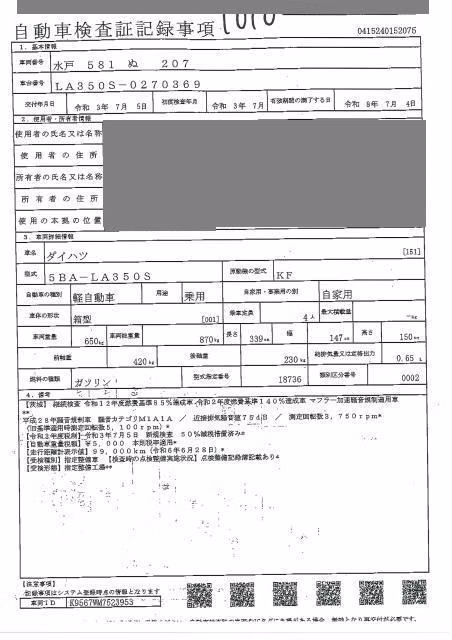 自動車検査証記録事項
0415240152075
1. 基本情報
車両番号 水戸 581 ぬ 207
車台番号 LA350S-0270369
交付年月日 令和 3年 7月 5日 初度検査年月 令和 3年 7月 有効期間の満了する日 令和 8年 7月 4日
2. 使用者・所有者情報
使用者の氏名又は名称
使用者の住所
所有者の氏名又は名称
所有者の住所
使用の本拠の位置
3. 車両詳細情報
車名 ダイハツ [151]
型式 5BA-LA350S 原動機の型式 KF
自動車の種別 軽自動車 用途 乗用 自家用・事業用の別 自家用
車体の形状 箱型 [001] 乗車定員 4人 最大積載量 -kg
車両重量 650kg 車両総重量 870kg 長さ 339cm 幅 147cm 高さ 150cm
前軸重 420kg 後軸重 230kg 総排気量又は定格出力 0.65 L
燃料の種類 ガソリン 型式指定番号 18736 類別区分番号 0002
4. 備考
【茨城】 継続検査 令和12年度燃費基準85%達成車 令和2年度燃費基準140%達成車 マフラー加速騒音規制適用車
**
平成28年騒音規制車 騒音カテゴリM1A1A / 近接排気騒音値75dB / 測定回転数3,750rpm*
(旧基準適用時測定回転数5,100rpm)*
【令和3年度税制】令和3年7月5日 新規検査 50%減税措置済み*
【自動車重量税額】¥5,000 本則税率適用*
【走行距離計表示値】99,000km (令和6年6月28日)*
【受検種別】指定整備車 【検査時の点検整備実施状況】点検整備記録簿記載あり*
【受検形態】指定整備工場**
【注意事項】
記録事項はシステム登録時点の情報となります
車両ID K9567WM7523953